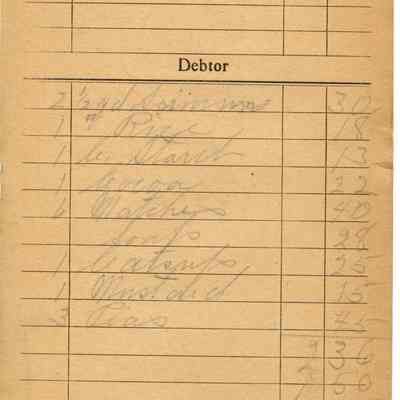 Debtor
2 ½ yd 30
1 # Rice 18
1 C. Starch 13
1 Cocoa 22
6 Matches 40
Soap 28
1 Catsup 25
1 Mustard 15
3 Peas 45
36
50